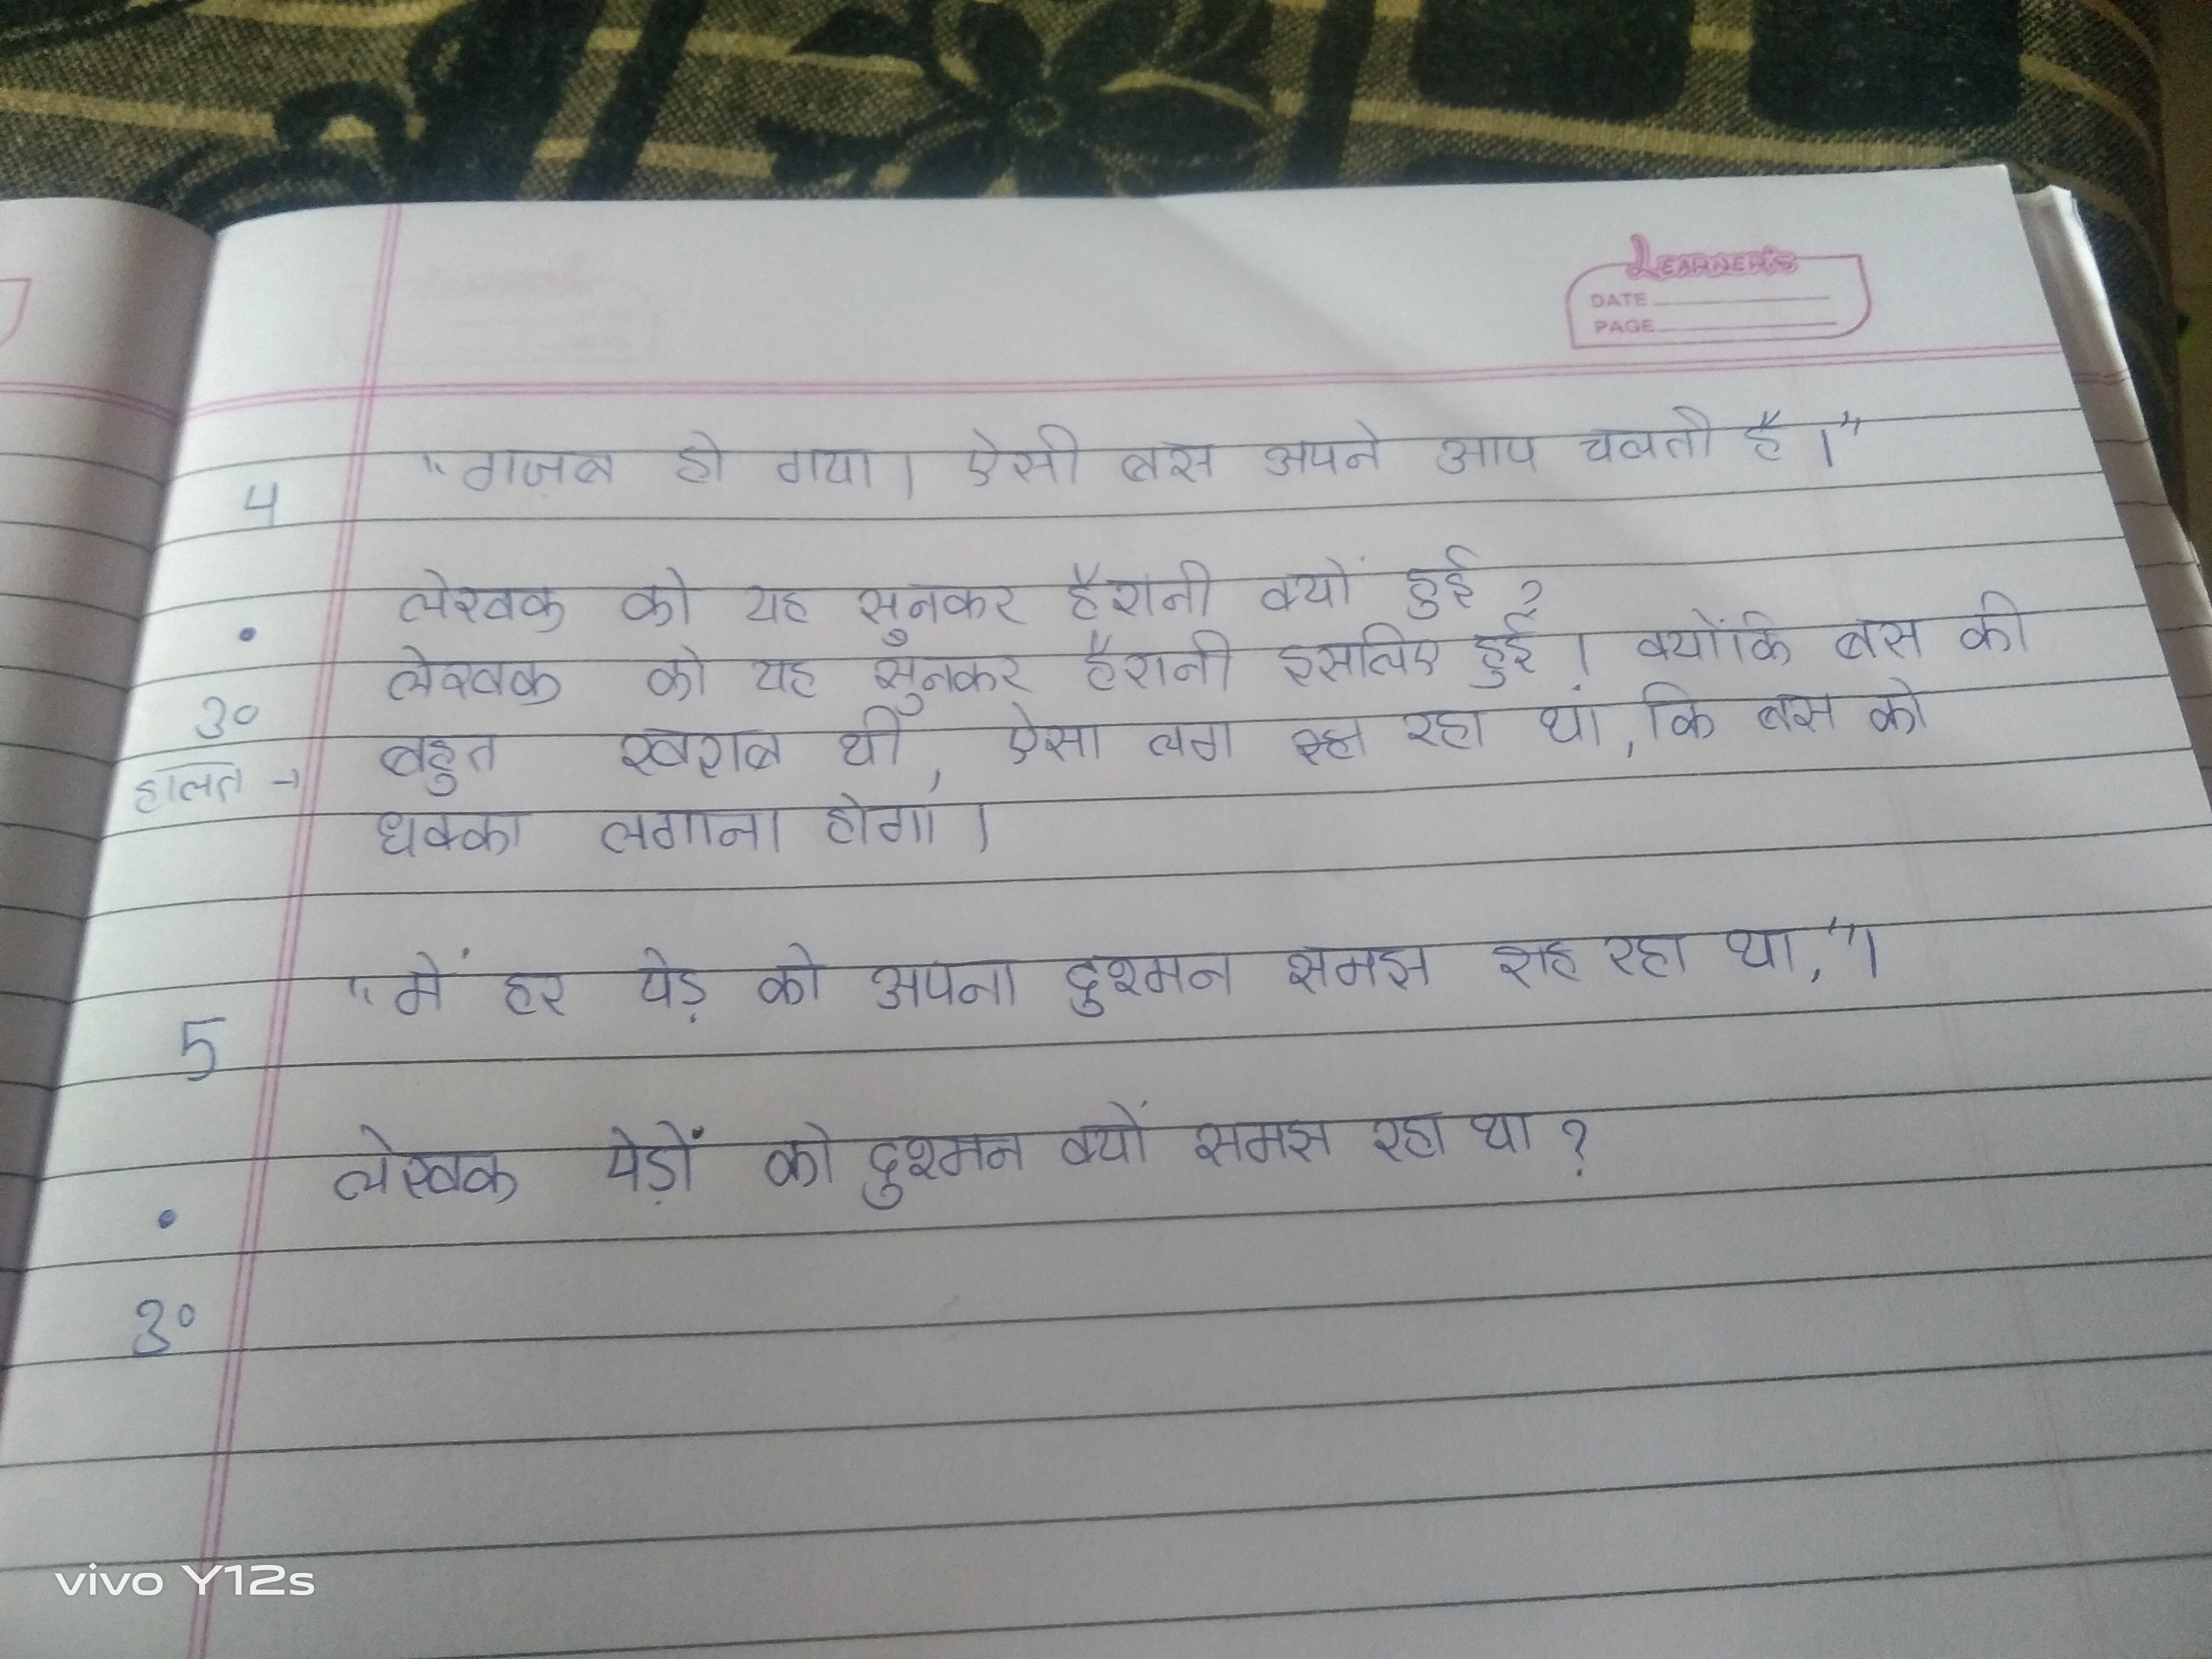 LEARNER'S
DATE
PAGE
4 "गज़ब हो गया। ऐसी बस अपने आप चलती है।"
• लेखक को यह सुनकर हैरानी क्यों हुई?
उ० लेखक को यह सुँनकर हैरानी इसलिए हुई। क्योंकि बस की
हालत → बहुत खराब थी, ऐसा लग रहा था, कि बस को
धक्का लगाना होगा।
5 "में हर पेड़ को अपना दुश्मन समझ रहा था,"।
• लेखक पेड़ों को दुश्मन क्यों समझ रहा था?
उ०
vivo Y12s